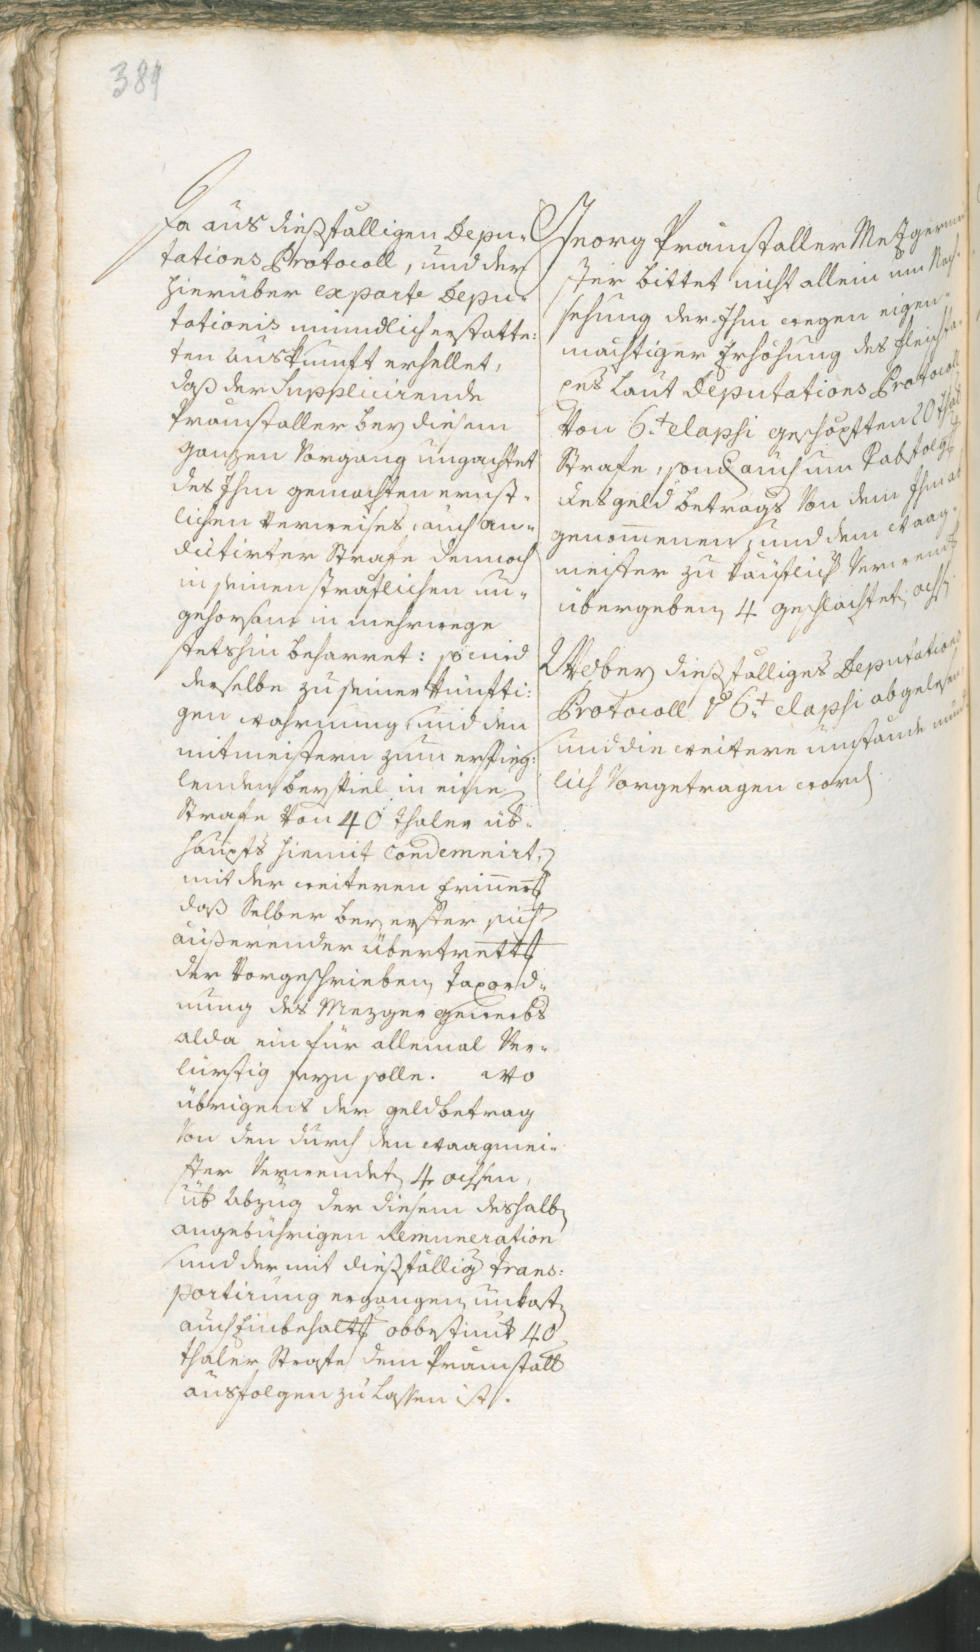 389
Da aus dießfälligen Depu-
tations Protocoll, und der
hierüber ex parte Depu-
tationis mündlich erstatte:
ten Auskunft erhellet,
daß der Supplicirende
Pramstaller bey diesem
ganzen Vorgang ungeachtet
des Ihm gemachten ernst-
lichen Verweises, auch an-
dictirter Strafe dennoch
in seinen sträflichen un-
gehorsam in mehrwege
stetshin beharret: so wird
derselbe zu seiner künfti:
gen wahrnung, und den
mitmeistern zum erspieg:
lenden beyspiel in eine
Strafe von 40 thaler üb-
haupts hiemit condemnirt,
mit der weiteren Erinnerg
daß Selber bey erster sich
äußerender übertrettg
der vorgeschrieben taxord-
nung des Mezger gewerbs
alda ein für allemal Ver-
lürstig seyn solle. Wo
übrigens der geldbetrag
von den durch den waagmei-
ster Verwendet 4 ochsen,
üb Abzug der diesem deshalb
angebührigen Remuneration
und der mit dießfällig trans:
portirung ergangen unkost
auch Einbehaltg obbestimt 40
thaler Strafe dem Pramstall
ausfolgen zu lassen ist.
Georg Pramstaller Metzgermei
ster bittet nicht allein um Nach-
sehung der Ihm wegen eigen-
mächtiger Erhöhung des fleischta-
xes laut Deputations Protocoll
Von 6t elapsi geschöpften 20 thal
Strafe, sond auch um Verabfolg
des geld betrags Von dem Ihm ab
genommenen, und dem waag-
meister zu käuflich Verwendg
übergeben 4 geschlachtet ochs
Webey dießfälliges Deputations
Protocoll de 6t elapsi abgelesen
und die weitere umstände münd
lich Vorgetragen word